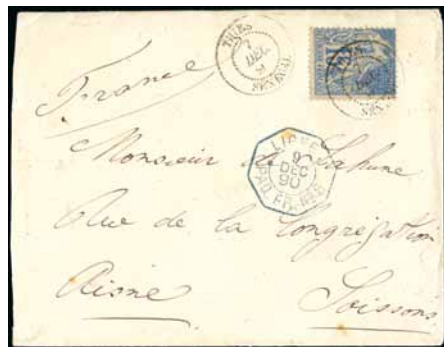 THIES
7
DEC
SENEGAL
France
LIGNE
9
DEC
90
PAQ. FR. N°6
Monsieur de Lahune
Rue de la Congrégation
Aisne
Soissons